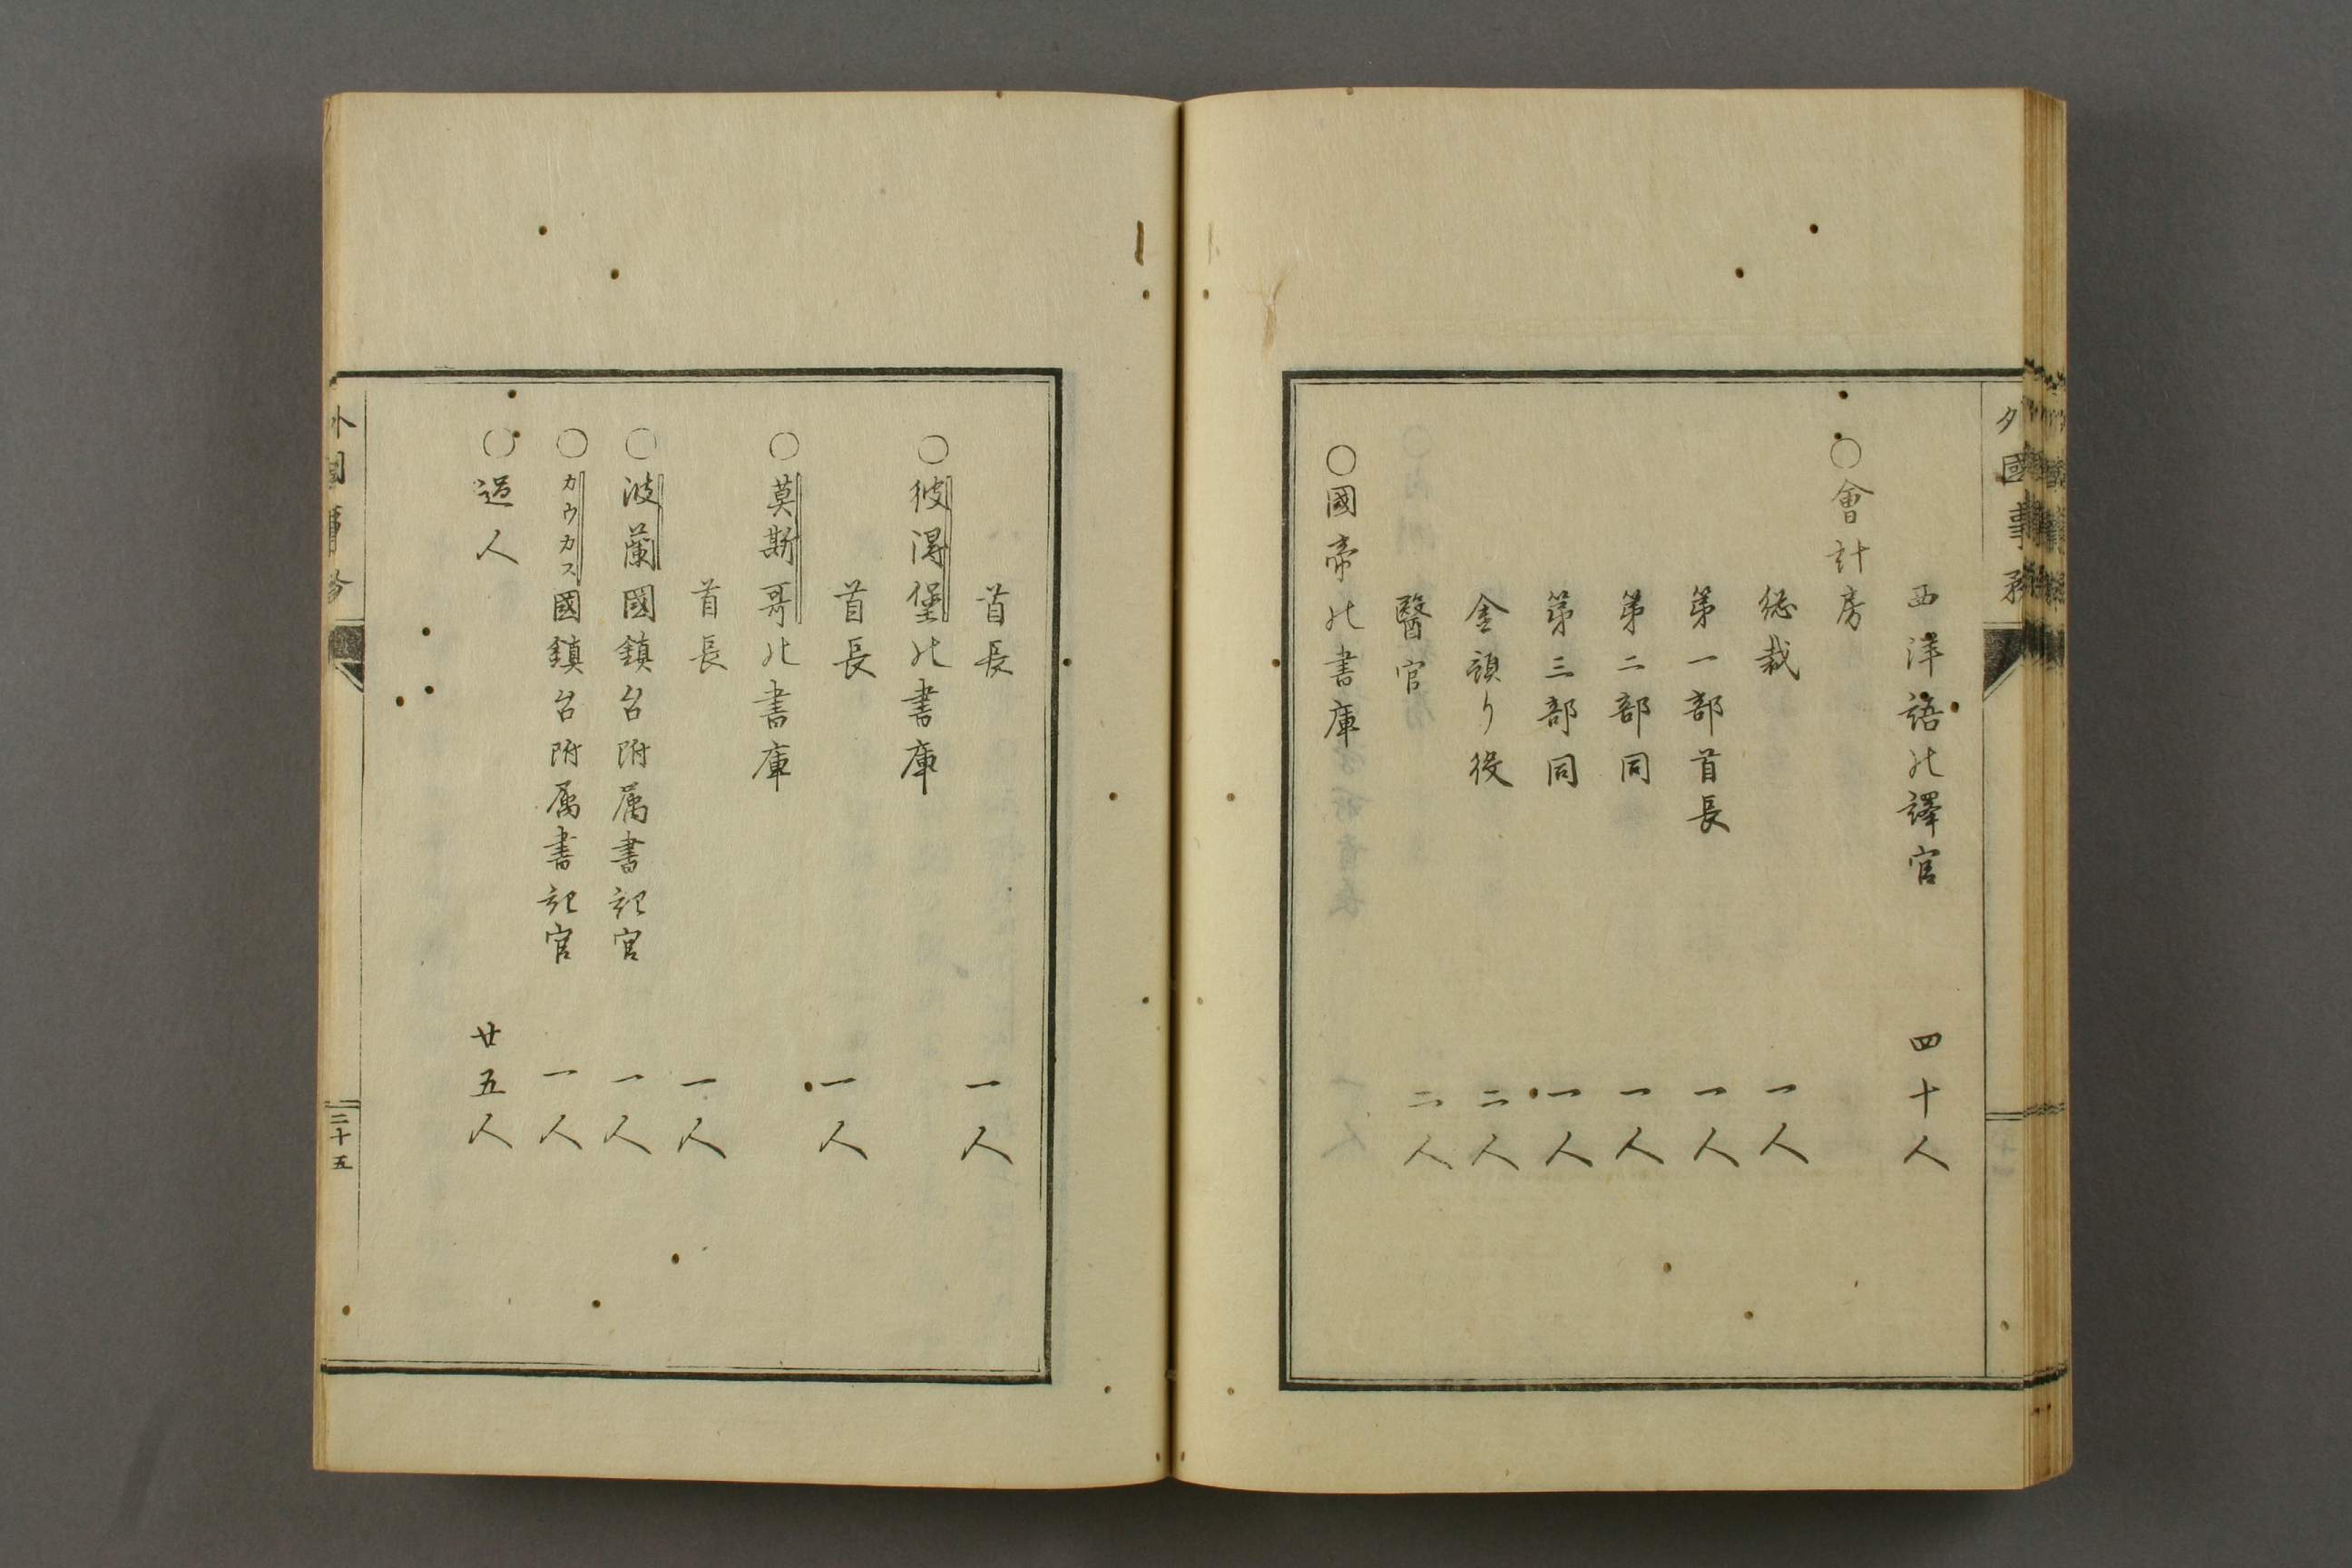 西洋語ノ譯官 四十人
○會計房
総裁 一人
第一部首長 一人
第二部同 一人
第三部同 一人
金預り役 二人
醫官 二人
○國帝ノ書庫
首長 一人
○彼得堡ノ書庫
首長 一人
○莫斯哥ノ書庫
首長 一人
○波蘭國鎮台附属書記官 一人
○カウカス國鎮台附属書記官 一人
○ 人 廿五人
外國事務
二十五